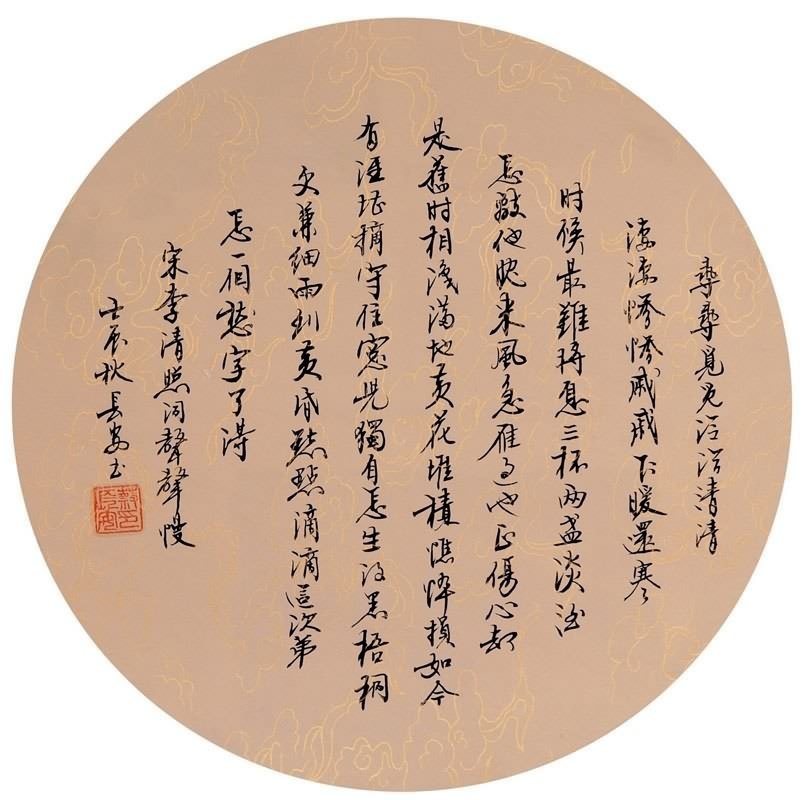 尋尋覓覓冷冷清清
淒淒慘慘戚戚乍暖還寒
时候最難将息三杯兩盏淡酒
怎敵他晚来風急雁过也正傷心却
是舊时相識满地黄花堆積憔悴損如今
有誰堪摘守住窓児獨自怎生得黑梧桐
更兼細雨到黄昏點點滴滴這次第
怎一個愁字了得
宋李清照詞聲聲慢
壬辰秋長安书